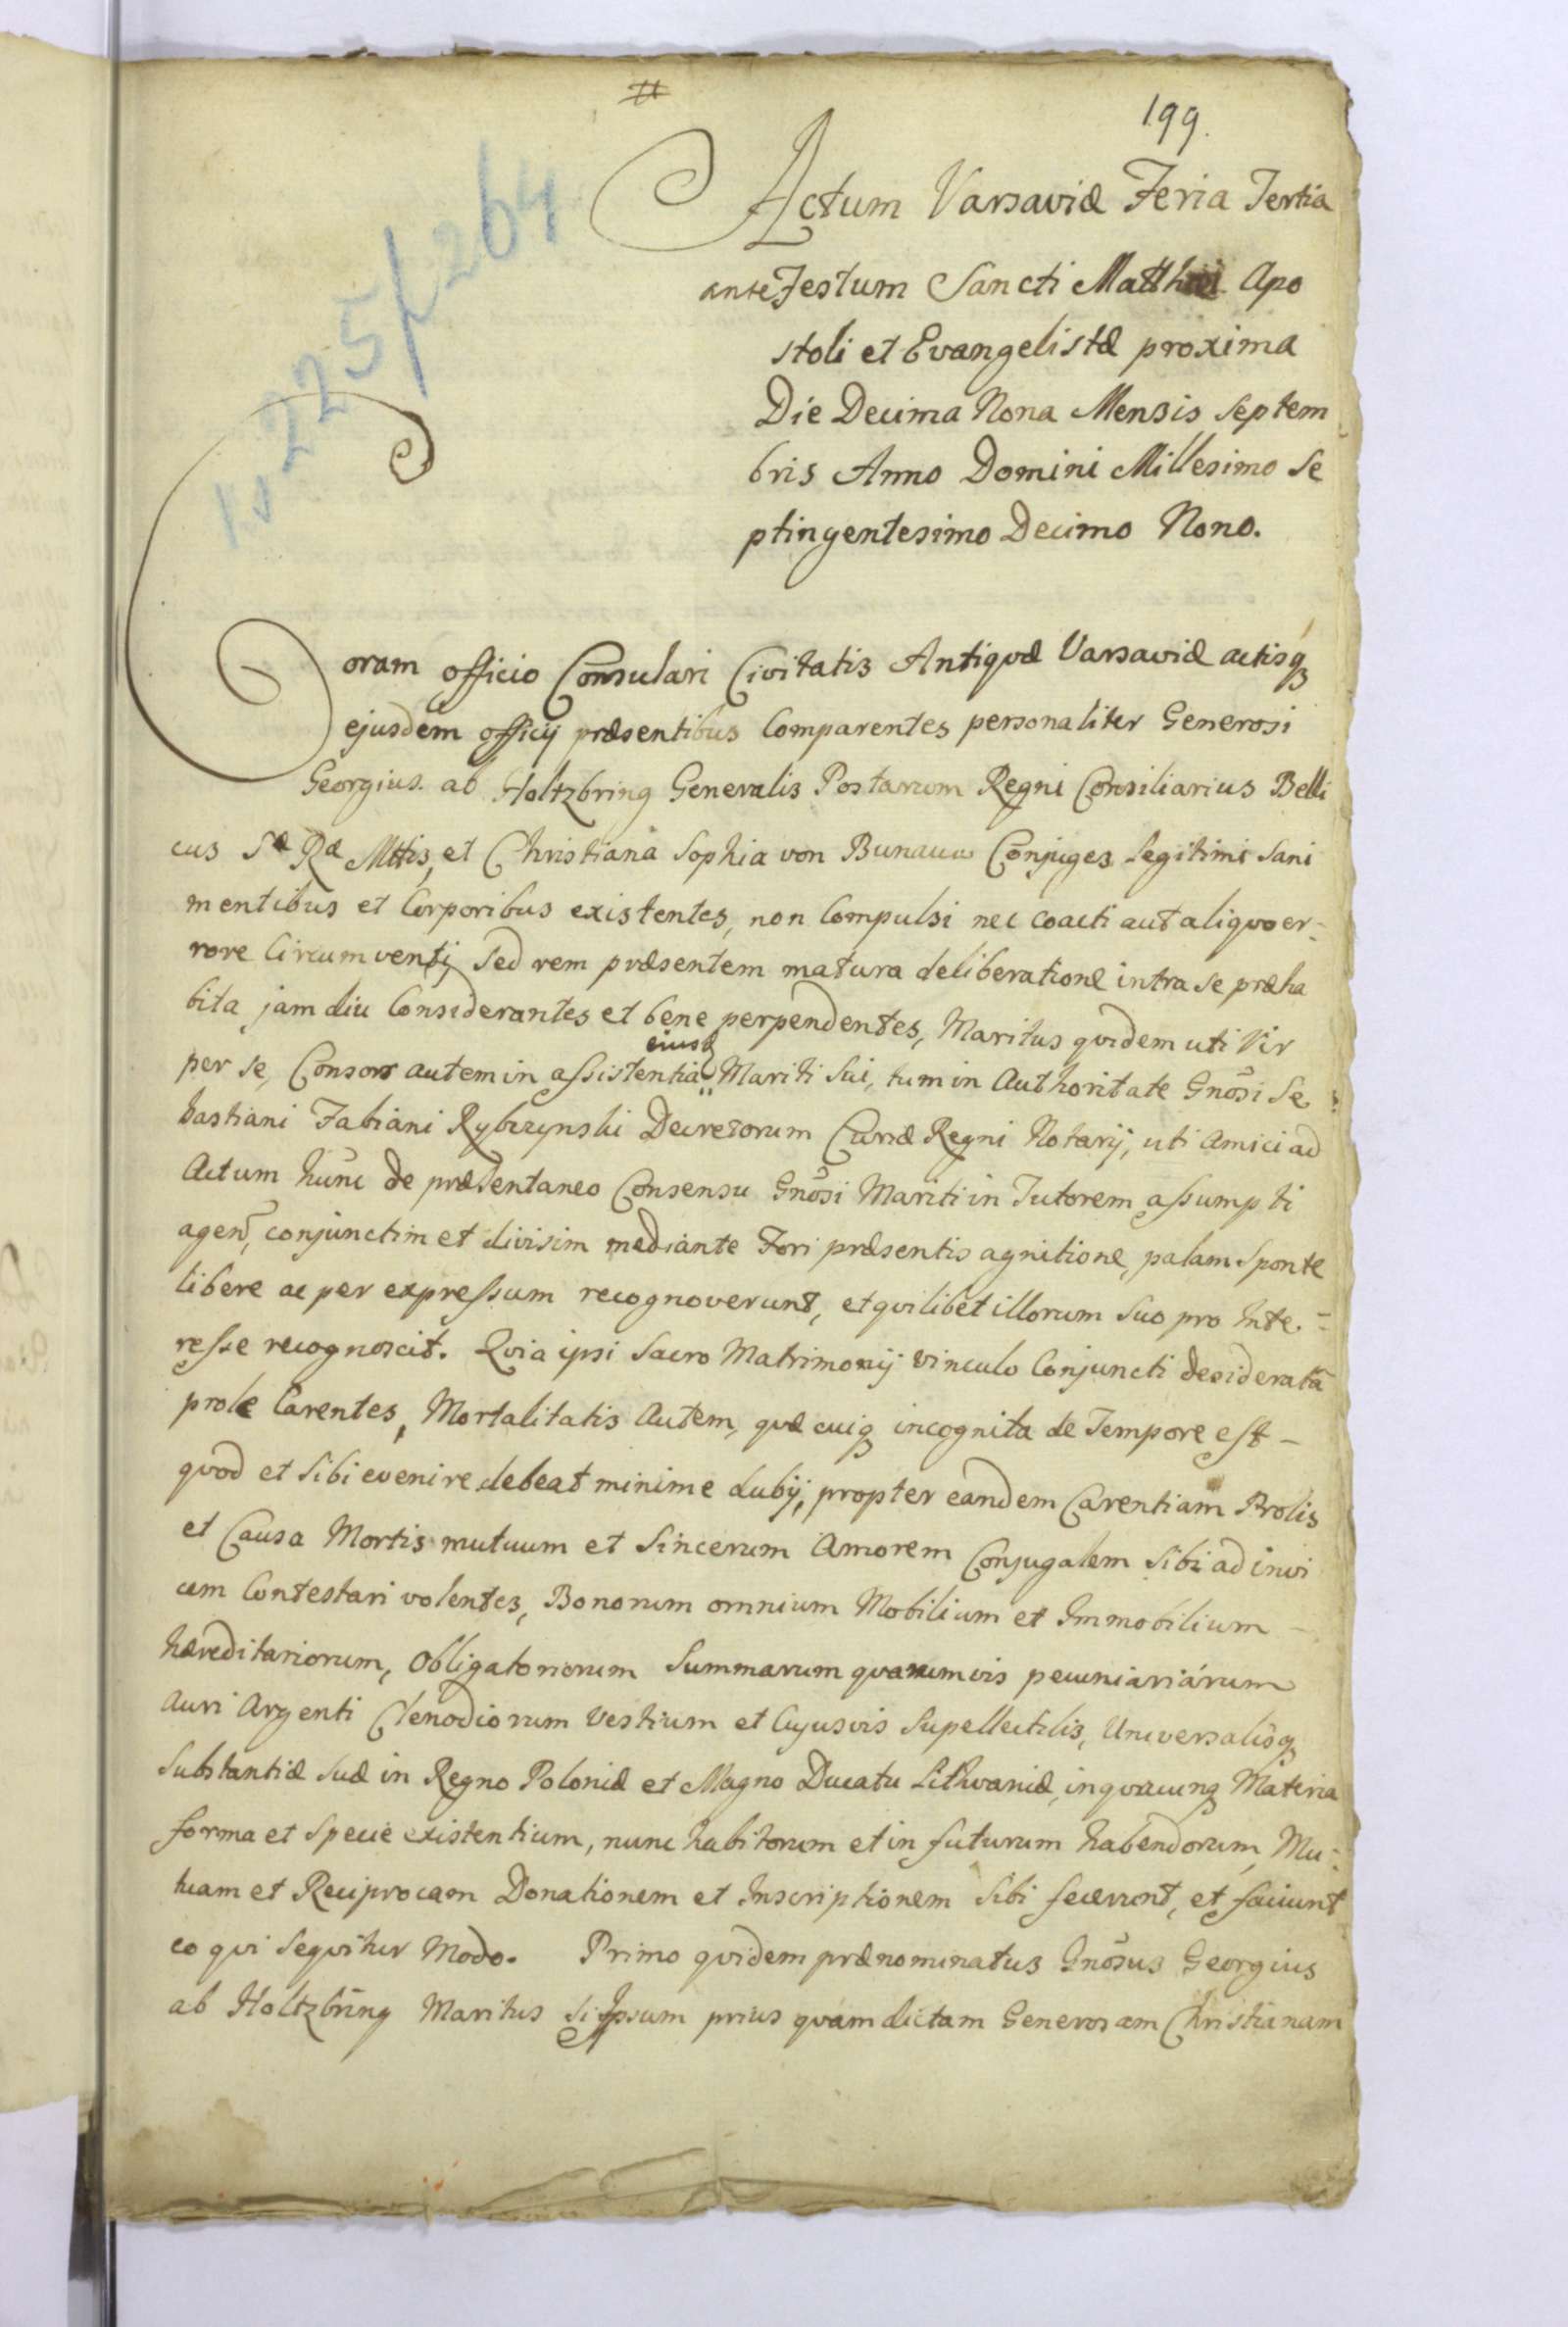 #
199.
225/264
Actum Varsaviæ Feria Tertia
ante Festum Sancti Matthæi Apo
stoli et Evangelistæ proxima
Die Decima Nona Mensis Septem
bris Anno Domini Millesimo Se
ptingentesimo Decimo Nono.
Coram officio Consulari Civitatis Antiqvæ Varsaviæ actisq₃
ejusdem officij præsentibus Comparentes personaliter Generosi
Georgius ab Holtzbring Generalis Postarum Regni Consiliarius Belli
cus Sæ Ræ Mttis, et Christiana Sophia von Bunauw Conjuges Legitimi Sani
mentibus et Corporibus existentes, non Compulsi nec coacti aut aliqvo er-
rore Circumventj Sed rem præsentem matura deliberatione intra se præha
bita jam diu Considerantes et bene perpendentes, Maritus qvidem uti Vir
per se, Consors autem in assistentia eiusd Mariti Sui, tum in Authoritate Gnosi Se-
bastiani Fabiani Rybczynski Decretorum Curiæ Regni Notarij, uti Amici ad
Actum hunc de præsentaneo Consensu Gnosi Mariti in Tutorem assumpti
agen, conjunctim et divisim mediante Fori præsentis agnitione, palam Sponte
libere ac per expressum recognoverunt, et qvilibet illorum Suo pro Inte-
resse recognoscit. Qvia ipsi Sacro Matrimonij vinculo Conjuncti desiderata
prole Carentes, Mortalitatis Autem, qvæ cuiq₃ incognita de Tempore est -
qvod et Sibi evenire debeat minime dubij, propter eandem Carentiam Prolis
et Causa Mortis mutuum et Sincerum Amorem Conjugalem Sibi ad invi
cem Contestari volentes, Bonorum omnium Mobilium et Immobilium -
hæreditariorum, Obligatoriorum Summarum qvarumvis pecuniariarum
Auri Argenti Clenodiorum Vestium et Cujusvis Supellectilis, Universalisq₃
Substantiæ Suæ in Regno Poloniæ et Magno Ducatu Lithvaniæ, in qvacunq₃ Materia
forma et Specie existentium, nunc habitorum et in futurum habendorum, Mu-
tuam et Reciprocam Donationem et Inscriptionem Sibi fecerunt, et faciunt
eo qvi Seqvitur Modo. Primo qvidem prænominatus Gnosus Georgius
ab Holtzbring Maritus Si Ipsum prius qvam dictam Generosam Christianam